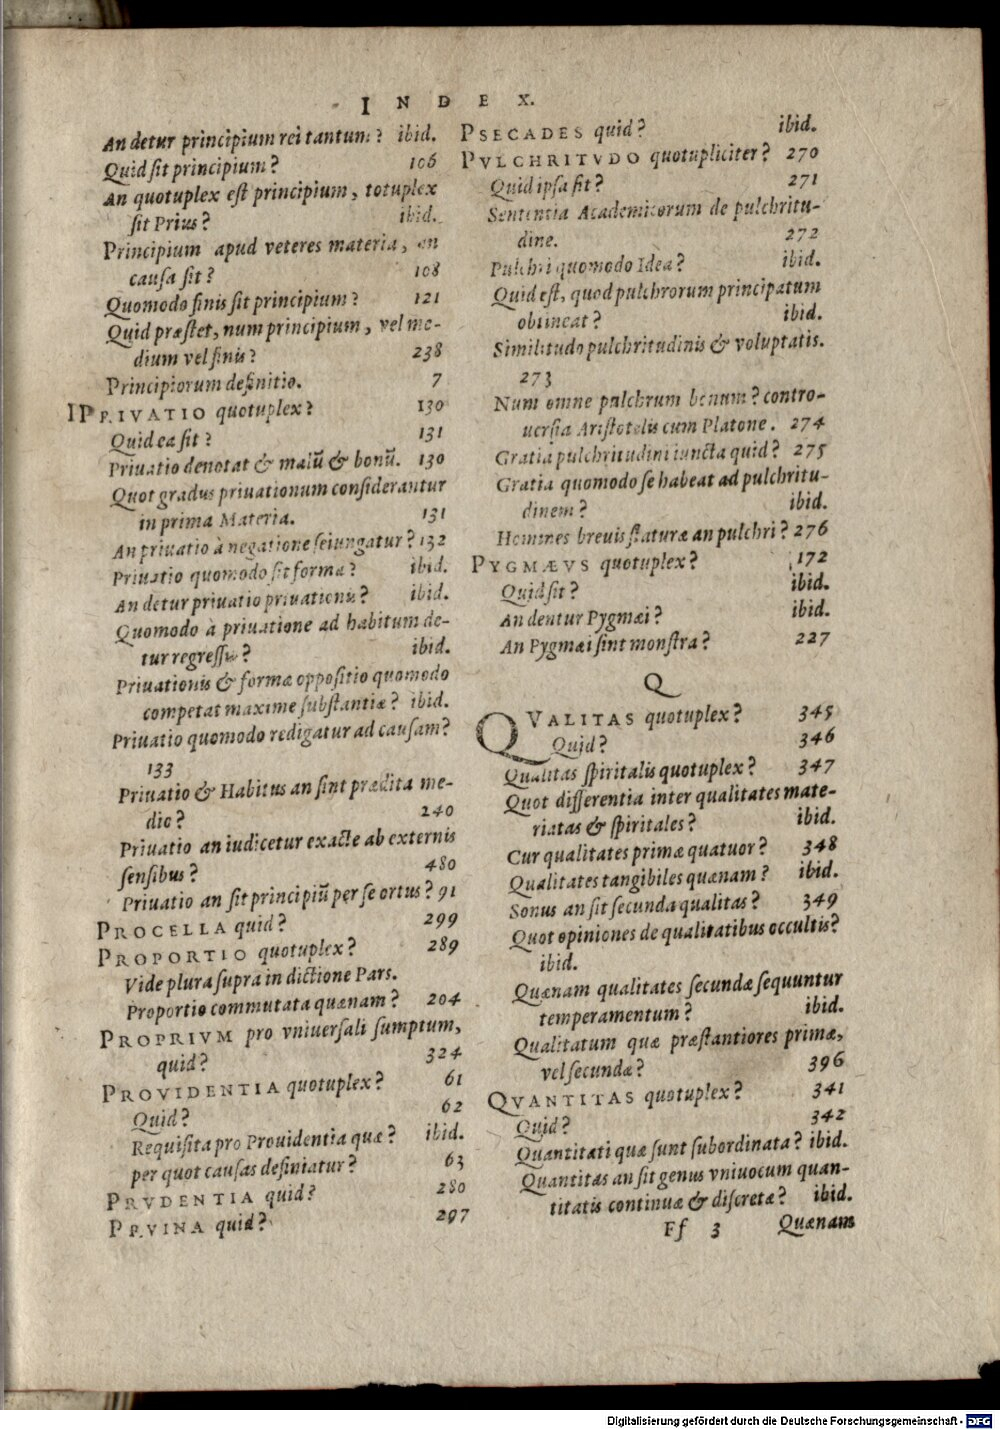 INDEX.
An detur principium rei tantum? ibid.
Quid sit principium? 106
An quotuplex est principium, totuplex
sit Prius? ibid.
Principium apud veteres materia, an
causa sit? 108
Quomodo finis sit principium? 121
Quid præstet, num principium, vel me-
dium vel finis? 238
Principiorum definitio. 7
PRIVATIO quotuplex? 130
Quid ea sit? 131
Priuatio denotat & malũ & bonũ. 130
Quot gradus priuationum considerantur
in prima Materia. 131
An priuatio à negatione seiungatur? 132
Priuatio quomodo sit forma? ibid.
An detur priuatio priuationis? ibid.
Quomodo à priuatione ad habitum de-
tur regressus? ibid.
Priuationis & formæ oppositio quomodo
competat maxime substantiæ? ibid.
Priuatio quomodo redigatur ad causam?
133
Priuatio & Habitus an sint prædita me-
dio? 240
Priuatio an iudicetur exacte ab externis
sensibus? 480
Priuatio an sit principiũ per se ortus? 91
PROCELLA quid? 299
PROPORTIO quotuplex? 289
Vide plura supra in dictione Pars.
Proportio commutata quænam? 204
PROPRIVM pro vniuersali sumptum,
quid? 324
PROVIDENTIA quotuplex? 61
Quid? 62
Requisita pro Prouidentia quæ? ibid.
per quot causas definiatur? 63
PRVDENTIA quid? 280
PRVINA quid? 297
PSECADES quid? ibid.
PVLCHRITVDO quotupliciter? 270
Quid ipsa sit? 271
Sententia Academicorum de pulchritu-
dine. 272
Pulchri quomodo Idea? ibid.
Quid est, quod pulchrorum principatum
obtineat? ibid.
Similitudo pulchritudinis & voluptatis.
273
Num omne pulchrum bonum? contro-
uersia Aristotelis cum Platone. 274
Gratia pulchritudini iuncta quid? 275
Gratia quomodo se habeat ad pulchritu-
dinem? ibid.
Homines breuis staturæ an pulchri? 276
PYGMÆVS quotuplex? 172
Quid sit? ibid.
An dentur Pygmæi? ibid.
An Pygmæi sint monstra? 227
Q
QVALITAS quotuplex? 345
Quid? 346
Qualitas spiritalis quotuplex? 347
Quot differentia inter qualitates mate-
riatas & spiritales? ibid.
Cur qualitates primæ quatuor? 348
Qualitates tangibiles quænam? ibid.
Sonus an sit secunda qualitas? 349
Quot opiniones de qualitatibus occultis?
ibid.
Quænam qualitates secundæ sequuntur
temperamentum? ibid.
Qualitatum quæ præstantiores primæ,
vel secundæ? 396
QVANTITAS quotuplex? 341
Quid? 342
Quantitati quæ sunt subordinata? ibid.
Quantitas an sit genus vniuocum quan-
titatis continuæ & discretæ? ibid.
Ff 3 Quænam
Digitalisierung gefördert durch die Deutsche Forschungsgemeinschaft - DFG